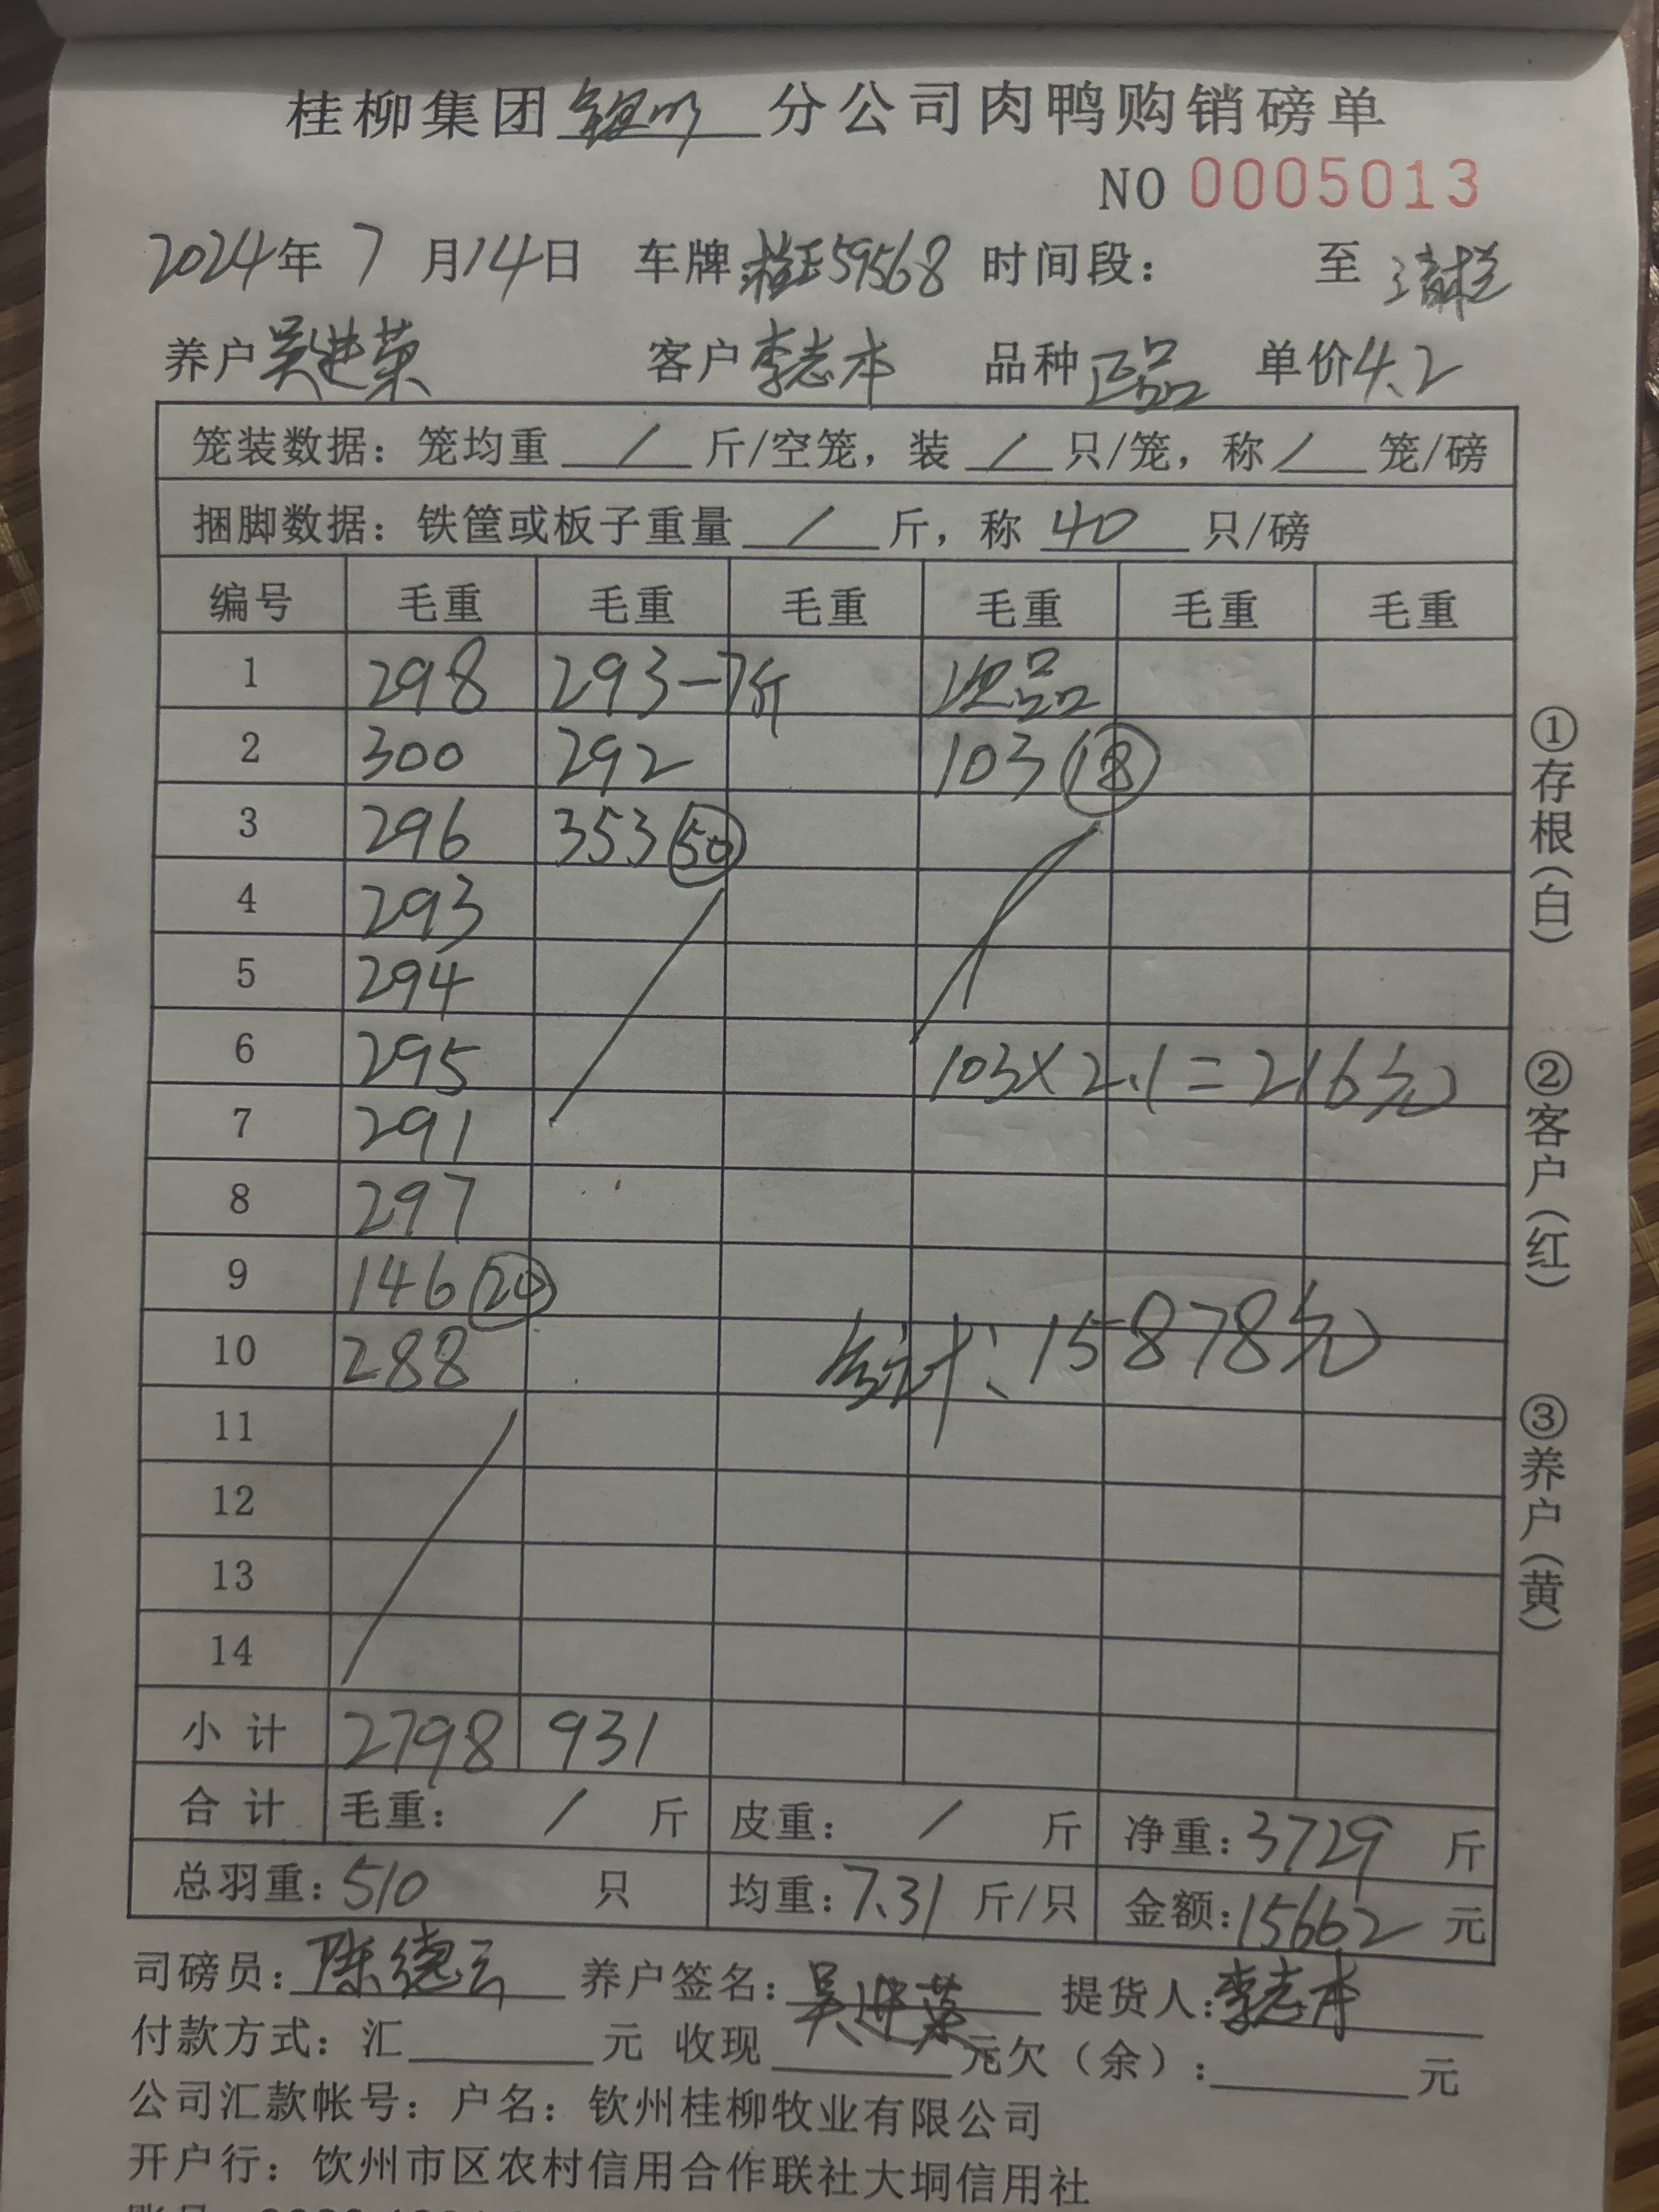 桂柳集团 分公司肉鸭购销磅单
NO 0005013
2024年 7 月14日 车牌:桂E59568 时间段: 至 清栏
养户 吴进荣 客户 李志本 品种 正品 单价 4.2
笼装数据:笼均重 / 斤/空笼,装 / 只/笼,称 / 笼/磅
捆脚数据:铁筐或板子重量 / 斤,称 40 只/磅
编号 毛重 毛重 毛重 毛重 毛重 毛重
1 298 293-7斤 次品
2 300 292 103 18
3 296 353 50
4 293
5 294
6 295 103×2.1=216元
7 291
8 297
9 146 20
10 288 合计:15878元
11
12
13
14
小计 2798 931
合计 毛重: / 斤 皮重: / 斤 净重:3729 斤
总羽重:510 只 均重:7.31 斤/只 金额:15662 元
司磅员:陈德云 养户签名:吴进荣 提货人:李志本
付款方式:汇 元 收现 元欠(余): 元
公司汇款帐号:户名:钦州桂柳牧业有限公司
开户行:饮州市区农村信用合作联社大垌信用社
①存根(白)
②客户(红)
③养户(黄)